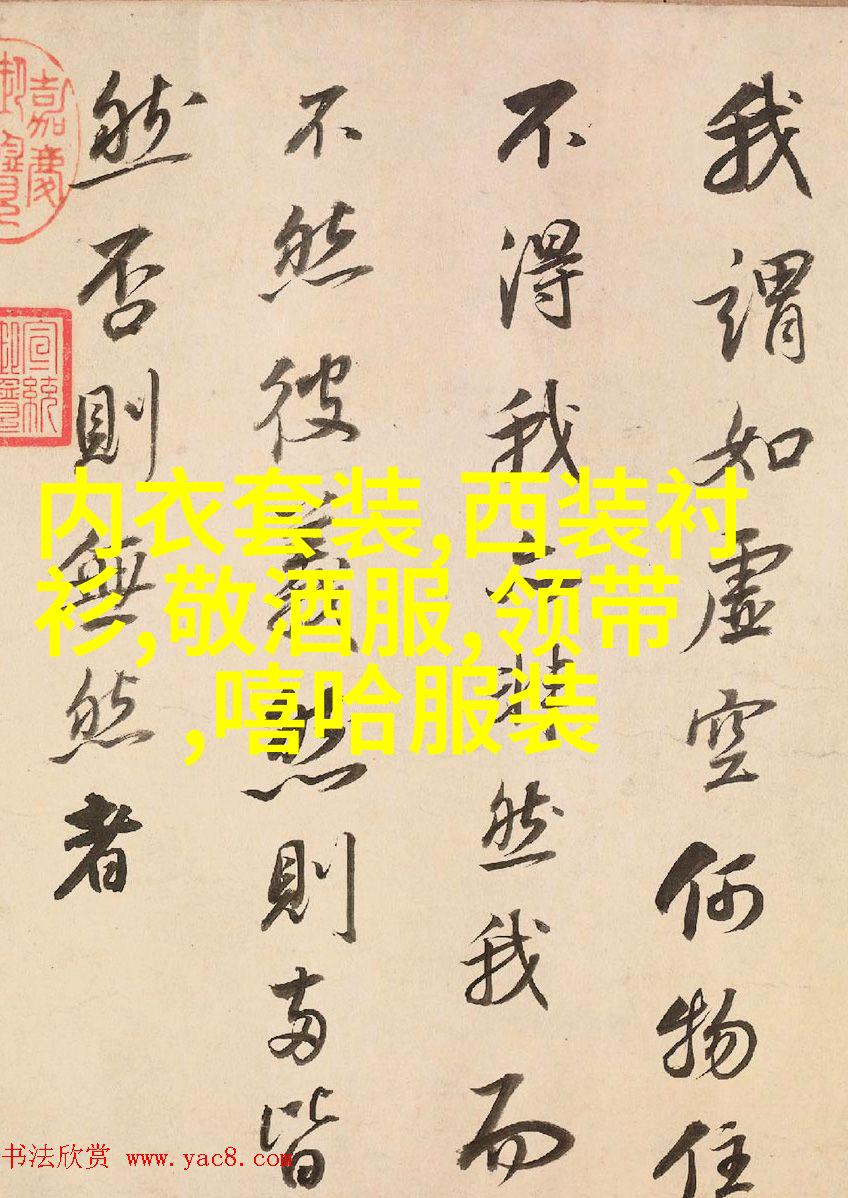 我謂如虛空何物住
不得我非然我而
不然彼義然則兩皆
然否則無然者
嘉慶
宣統
内衣套装,西装衬
衫,敬酒服,领带
,嘻哈服装
书法欣赏 www.yac8.com